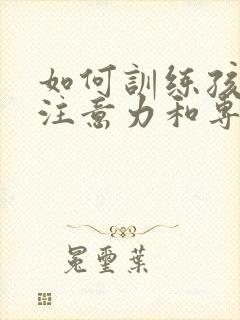 如何訓練孩
注意力和專
冕璽葉